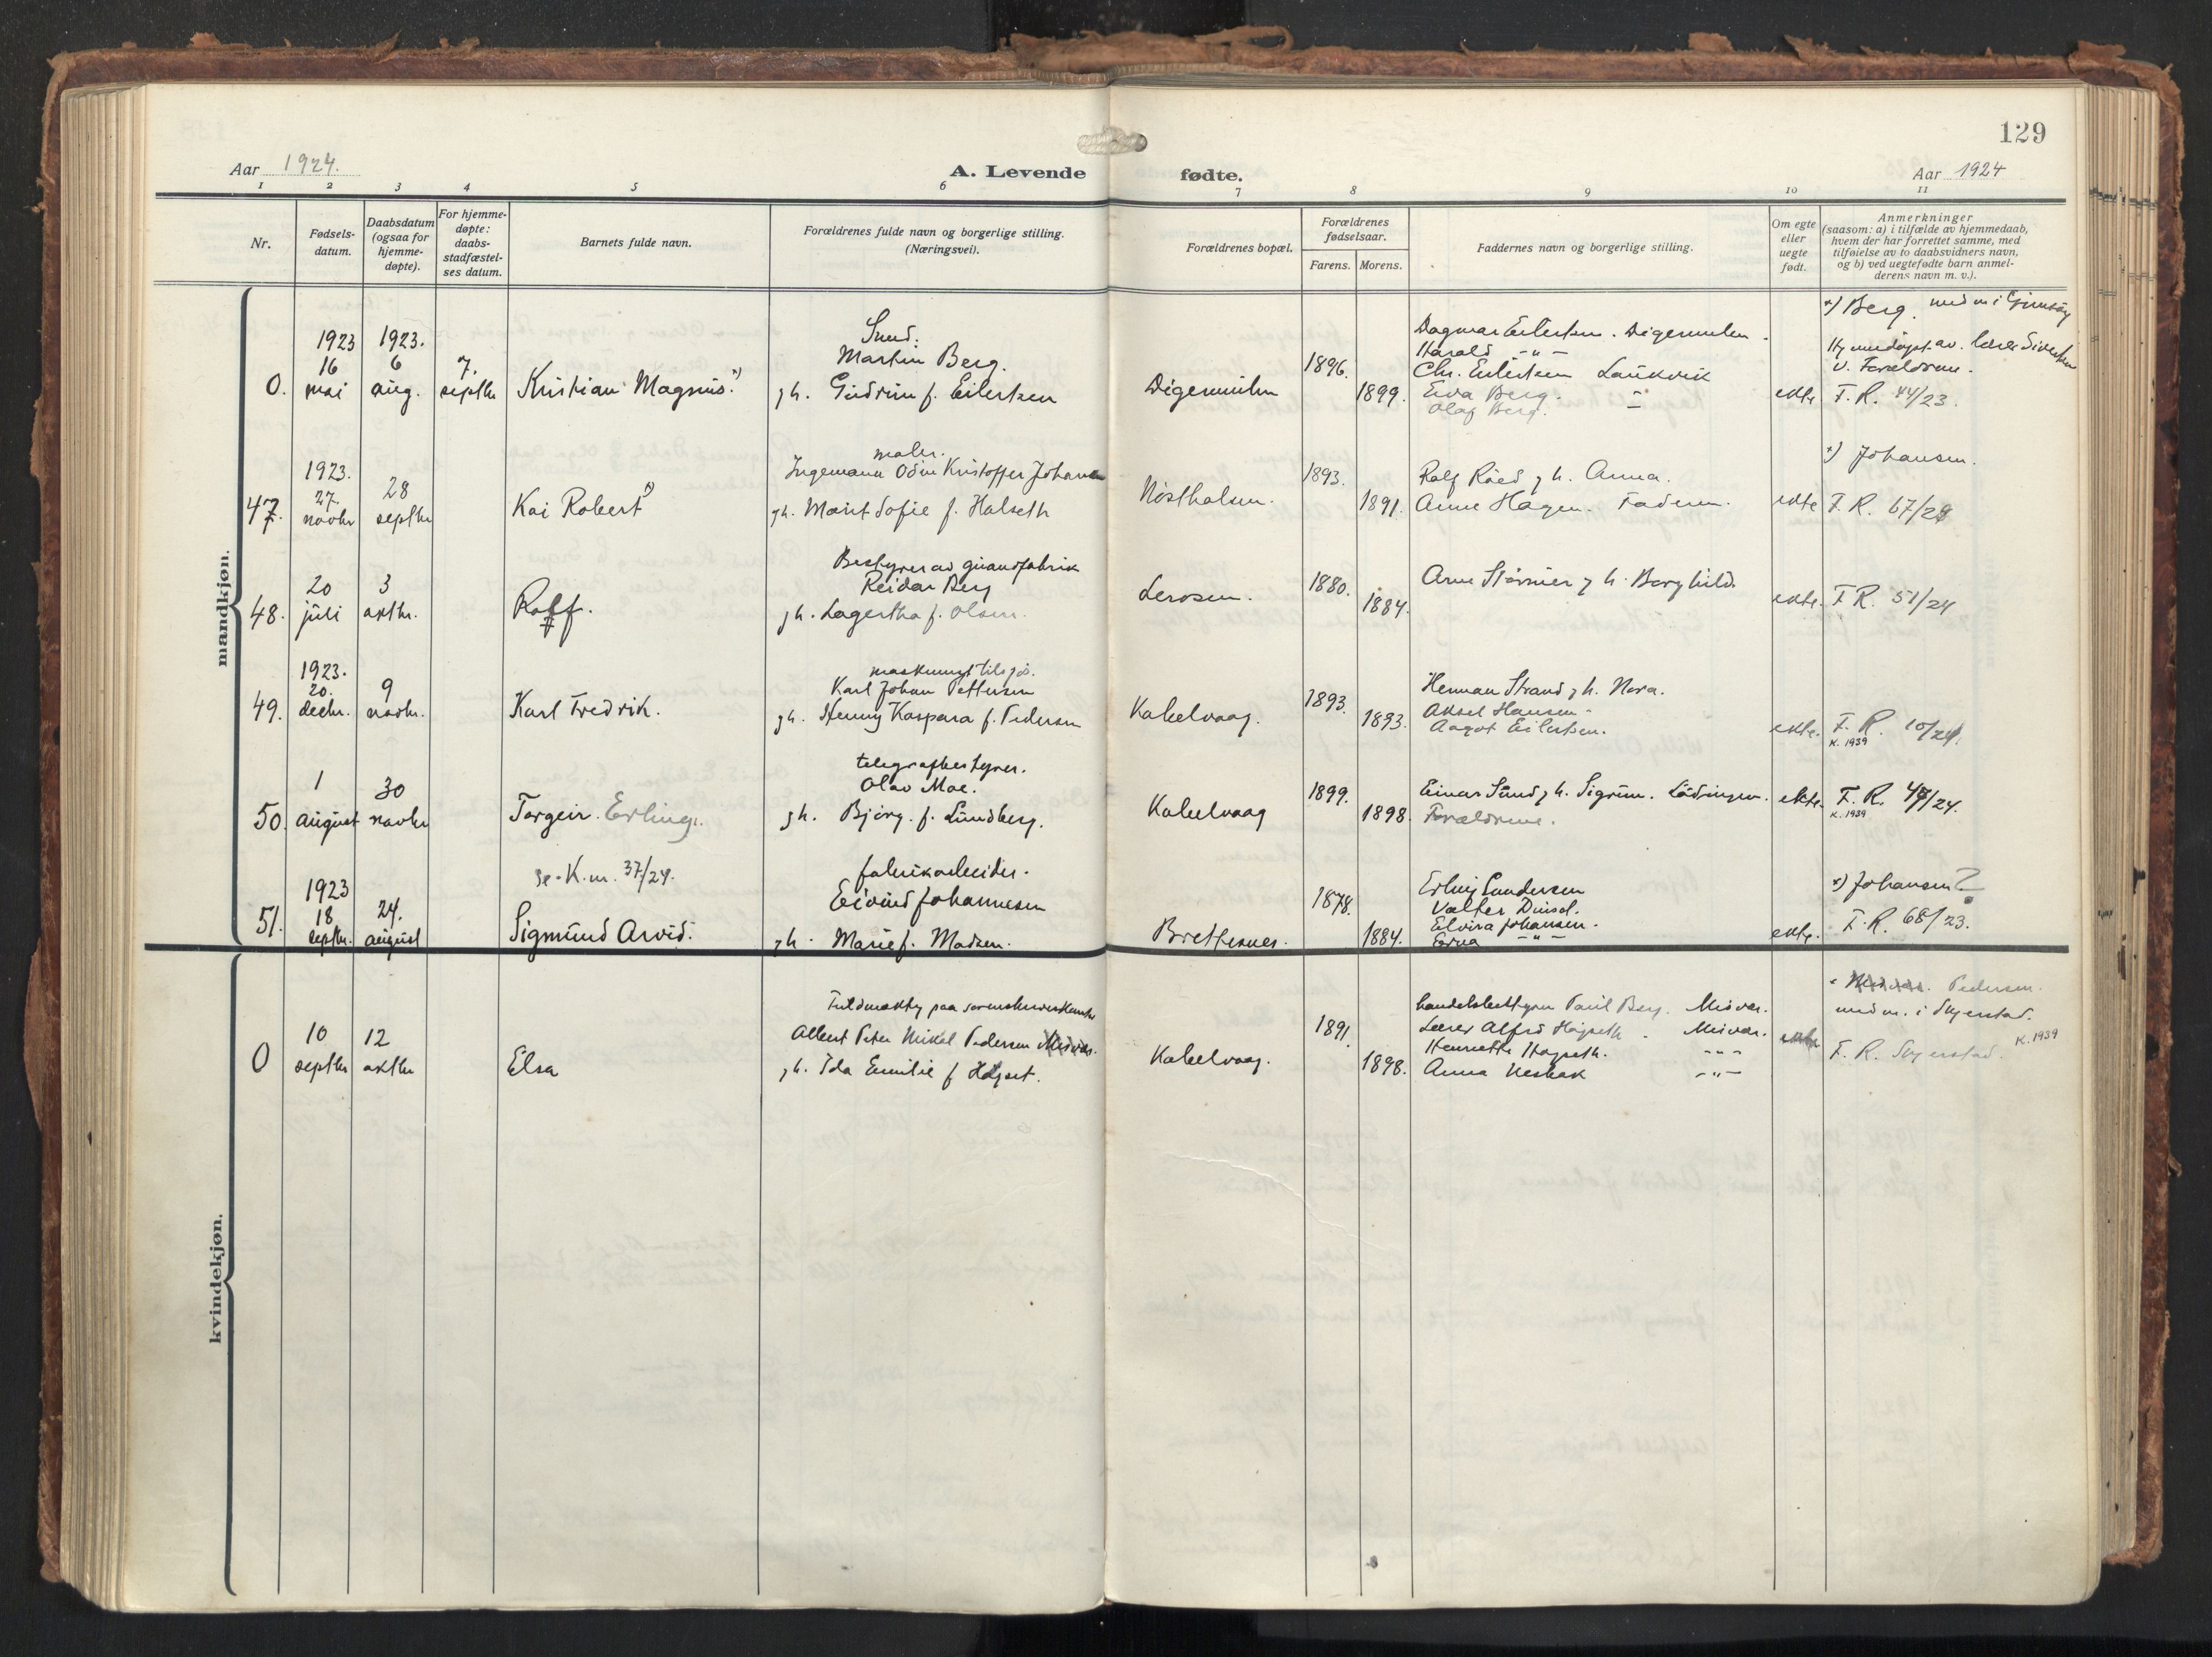 129
Aar 1924.
A. Levende fødte.
Aar 1924
1 2 3 4 5 6 7 8 9 10 11
Nr.
Fødsels-
datum.
Daabsdatum
(ogsaa for
hjemme-
døpte).
For hjemme-
døpte:
daabs-
stadfæstel-
ses datum.
Barnets fulde navn.
Forældrenes fulde navn og borgerlige stilling.
(Næringsvei).
Forældrenes bopæl.
Forældrenes
fødselsaar.
Farens. Morens.
Faddernes navn og borgerlige stilling.
Om egte
eller
uegte
født.
Anmerkninger
(saasom: a) i tilfælde av hjemmedaab,
hvem der har forrettet samme, med
tilføielse av to daabsvidners navn,
og b) ved uegtefødte barn anmel-
derens navn m. v.).
mandkjøn.
0.
1923
16
mai
1923.
6
aug.
7.
septbr
Kristian Magnus x)
Martin Berg.
g h. Gudrun f. Eilertsen
Digermulen
1896.
1899.
Dagmar Eilertsen. Digermulen.
Harald -"-
Chr. Eilertsen Laukvik
Eva Berg.
Olaf Berg.
ekte
x) Berg. medm i Gimsøy
Hjemmedøpt av lærer Sivertsen
v. Forældrene.
F. R. 44/23.
47.
1923.
27.
novbr
28
septbr
Kai Robert x)
maler.
Ingemann Odin Kristoffer Johansen
gh. Marit Sofie f. Halseth
Nøstholmen.
1893.
1891.
Rolf Røed g h. Anna.
Arne Hagen. Faderen.
ekte
x) Johansen.
F. R. 67/23
48.
20
juli
3
oktbr.
Rolf.
Bestyrer av guanofabrik
Reidar Berg
g h. Lagertha f. Olsen.
Lerosen.
1880.
1884.
Arne Størmer g h. Borghild.
ekte.
F. R. 51/24
49.
1923.
20.
decbr.
9
novbr.
Karl Fredrik.
maskinist tilsjøs.
Karl Johan Pettersen
gh. Henny Kaspara f. Pedersen
Kabelvaag.
1893.
1893.
Herman Strand g h. Nora.
Aksel Hansen.
Aagot Eilertsen.
ekte.
F. R. 10/24.
K. 1939
50.
1
august
30
novbr
Torgeir Erling.
telegrafbestyrer.
Olav Moe.
gh. Bjørg. f. Lundberg.
Kabelvaag
1899.
1898.
Einar Sund g h. Sigrun. Lødingen.
Forældrene.
ekte.
F. R. 47/24.
K. 1939
51.
1923
18
septbr.
24.
august
se K.m. 37/24.
Sigmund Arvid.
fabrikarbeider.
Eivind Johannesen
gh. Marie f. Madsen.
Brettesnes.
1878.
1884.
Erling Gundersen
Valter
Elvira Johansen.
Erna -"-
ekte.
x) Johansen?
F. R. 68/23.
kvindekjøn.
0
10
septbr
12
oktbr
Elsa
Fuldmektig paa sorenskriverkontor
Albert Peter Mikal Pedersen Misvær.
gh. Ida Emilie f Høgset.
Kabelvaag.
1891.
1898.
handelsbestyrer Paul Berg. Misvær.
Lærer Alfred Høgseth. Misvær.
Henriette Høgseth. -"-
Anna Nesbak -"-
ekte
Pedersen.
medm. i Skjerstad.
F. R. Skjerstad. K. 1939